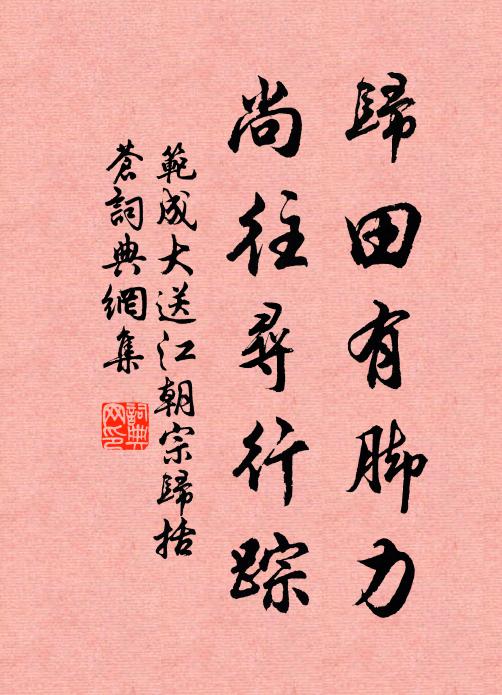 歸田有脚力
尚往尋行踪
範成大送江朝宗歸括
蒼詞典網集
詞典
网印